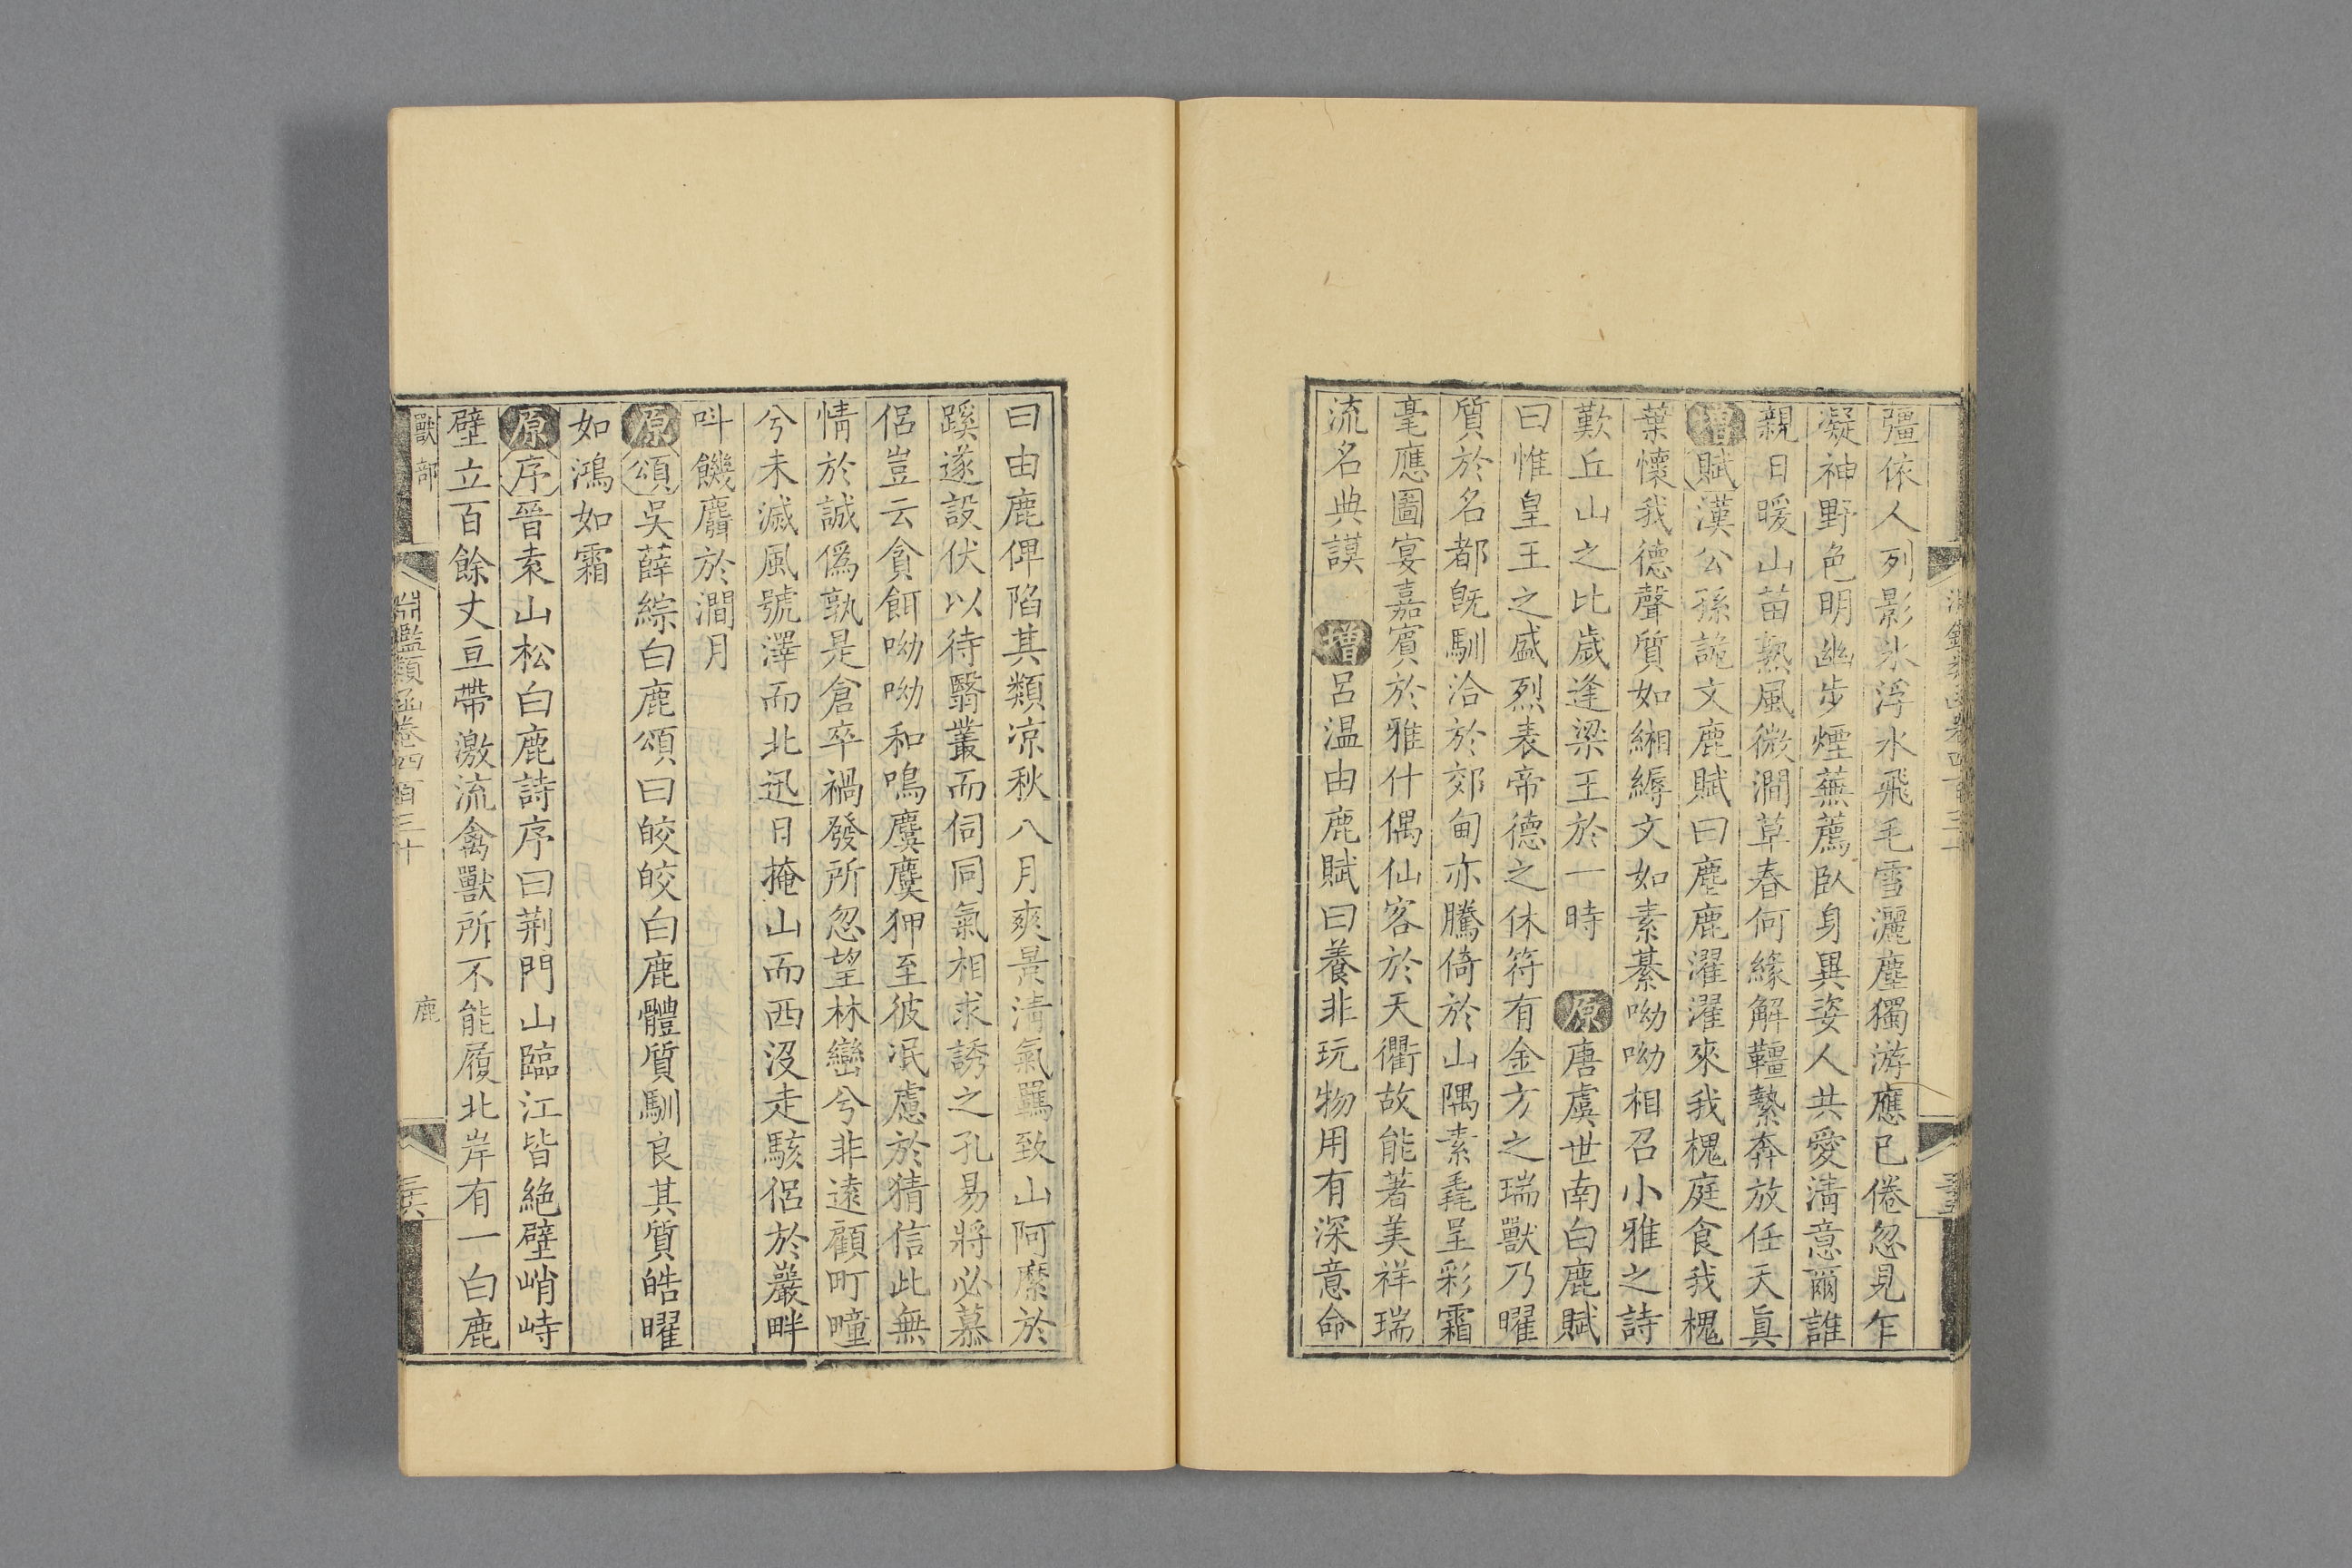 彊依人列影氷浮水飛毛雪灑塵獨游應已倦忽見乍
凝神野色明幽步煙蕪薦臥身異姿人共愛清意爾誰
親日暖山苗熟風微澗草春何緣解韁縶奔放任天眞
增賦漢公孫詭文鹿賦曰麈鹿濯濯來我槐庭食我槐
葉懷我德聲質如緗縟文如素綦呦呦相召小雅之詩
歎丘山之比歲逢梁王於一時 原唐虞世南白鹿賦
曰惟皇王之盛烈表帝德之休符有金方之瑞獸乃曜
質於名都旣馴洽於郊甸亦騰倚於山隅素毳呈彩霜
毫應圖宴嘉賓於雅什偶仙客於天衢故能著美祥瑞
流名典謨 增呂温由鹿賦曰養非玩物用有深意命
曰由鹿俾陷其類凉秋八月爽景清氣羈致山阿縻於
蹊遂設伏以待翳叢而伺同氣相求誘之孔易將必慕
侶豈云貪餌呦呦和鳴麌麌狎至彼泯慮於猜信此無
情於誠僞孰是倉卒禍發所忽望林巒兮非遠顧町疃
兮未滅風號澤而北迅日掩山而西沒走駭侶於巖畔
呌饑麛於澗月
原頌吳薛綜白鹿頌曰皎皎白鹿體質馴良其質皓曜
如鴻如霜
原序晉袁山松白鹿詩序曰荆門山臨江皆絶壁峭峙
壁立百餘丈亘帶激流禽獸所不能履北岸有一白鹿
獸部 淵鑑類函卷四百三十 鹿 三六